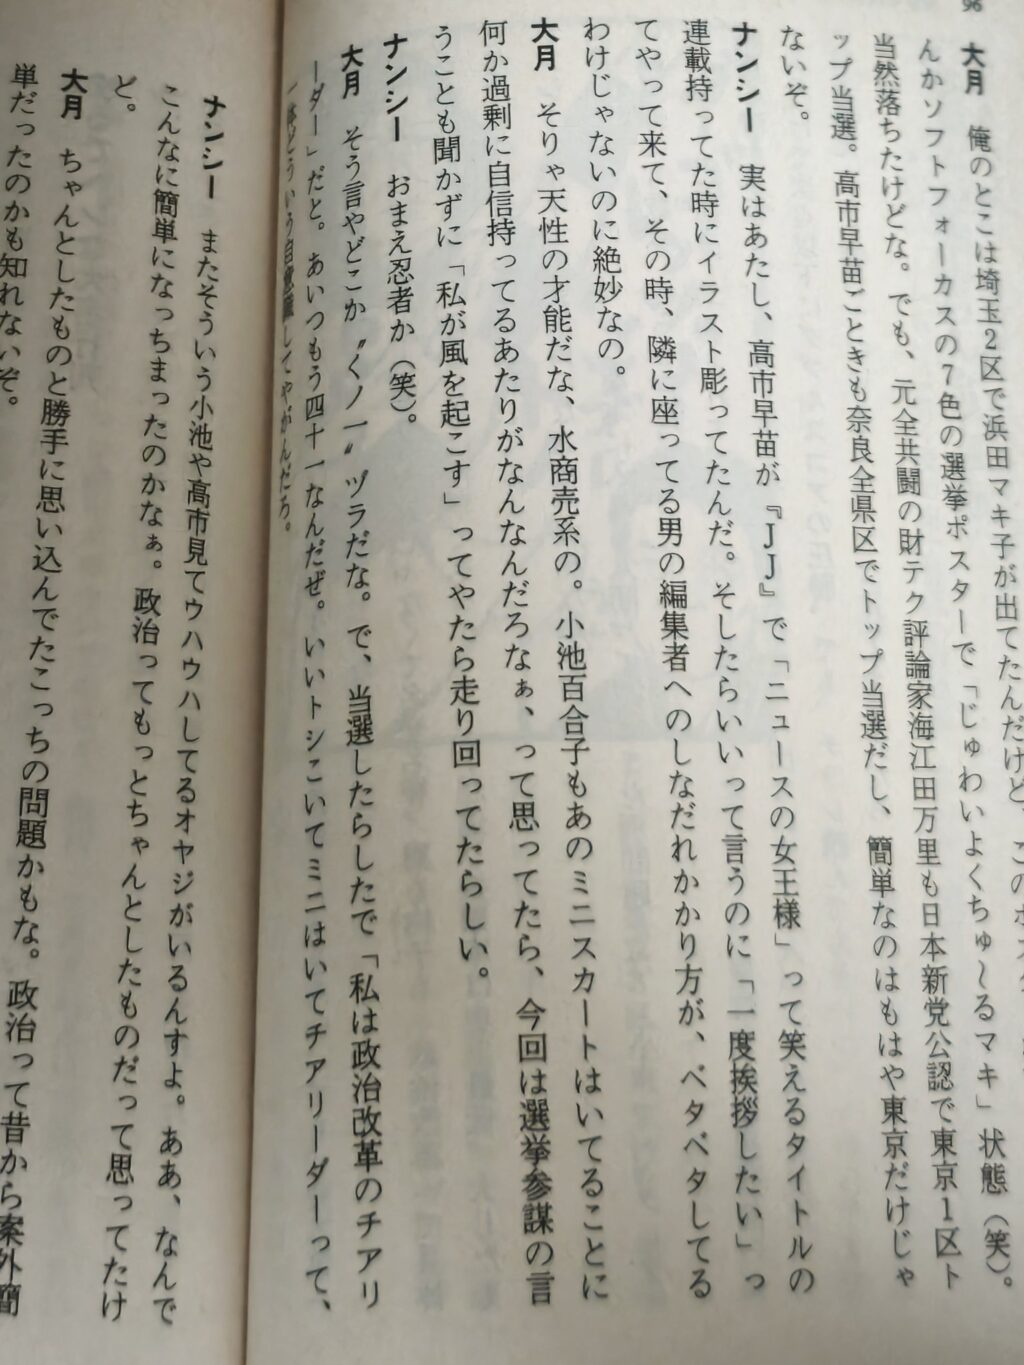 96
大月　俺のとこは埼玉2区で浜田マキ子が出てたんだけど、この
んかソフトフォーカスの7色の選挙ポスターで「じゅわいよくちゅ～るマキ」状態（笑）。
当然落ちたけどな。でも、元全共闘の財テク評論家海江田万里も日本新党公認で東京1区ト
ップ当選。高市早苗ごときも奈良全県区でトップ当選だし、簡単なのはもはや東京だけじゃ
ないぞ。
ナンシー　実はあたし、高市早苗が『JJ』で「ニュースの女王様」って笑えるタイトルの
連載持ってた時にイラスト彫ってたんだ。そしたらいいって言うのに「一度挨拶したい」っ
てやって来て、その時、隣に座ってる男の編集者へのしなだれかかり方が、ベタベタしてる
わけじゃないのに絶妙なの。
大月　そりゃ天性の才能だな、水商売系の。小池百合子もあのミニスカートはいてることに
何か過剰に自信持ってるあたりがなんなんだろなぁ、って思ってたら、今回は選挙参謀の言
うことも聞かずに「私が風を起こす」ってやたら走り回ってたらしい。
ナンシー　おまえ忍者か（笑）。
大月　そう言やどこか〝くノ一〟ヅラだな。で、当選したらしたで「私は政治改革のチアリ
ーダー」だと。あいつもう四十一なんだぜ。いいトシこいてミニはいてチアリーダーって、
一体どういう自意識してやがんだろ。
ナンシー　またそういう小池や高市見てウハウハしてるオヤジがいるんすよ。ああ、なんで
こんなに簡単になっちまったのかなぁ。政治ってもっとちゃんとしたものだって思ってたけ
ど。
大月　ちゃんとしたものと勝手に思い込んでたこっちの問題かもな。政治って昔から案外簡
単だったのかも知れないぞ。